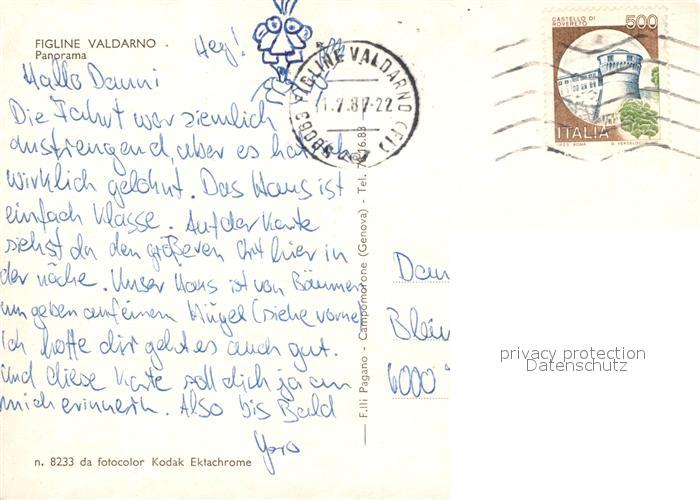 FIGLINE VALDARNO
Panorama
Hey!
Hallo Danni
Die Fahrt war ziemlich
anstrengend, aber es hat sich
wirklich gelohnt. Das Haus ist
einfach Klasse. Auf der Karte
siehst du den größeren Ort hier in
der nähe. Unser Haus ist von Bäumen
umgeben auf einem Hügel (siehe vorne)
Ich hoffe dir geht es auch gut.
Und diese Karte soll dich ja an
mich erinnern. Also bis Bald
n. 8233 da fotocolor Kodak Ektachrome
F.lli Pagano - Campomorone (Genova) - Tel.
50063 FIGLINE VALDARNO (FI)
87-22
CASTELLO DI
ROVERETO
500
ITALIA
I.P.Z.S. ROMA
Dan
6000
privacy protection
Datenschutz